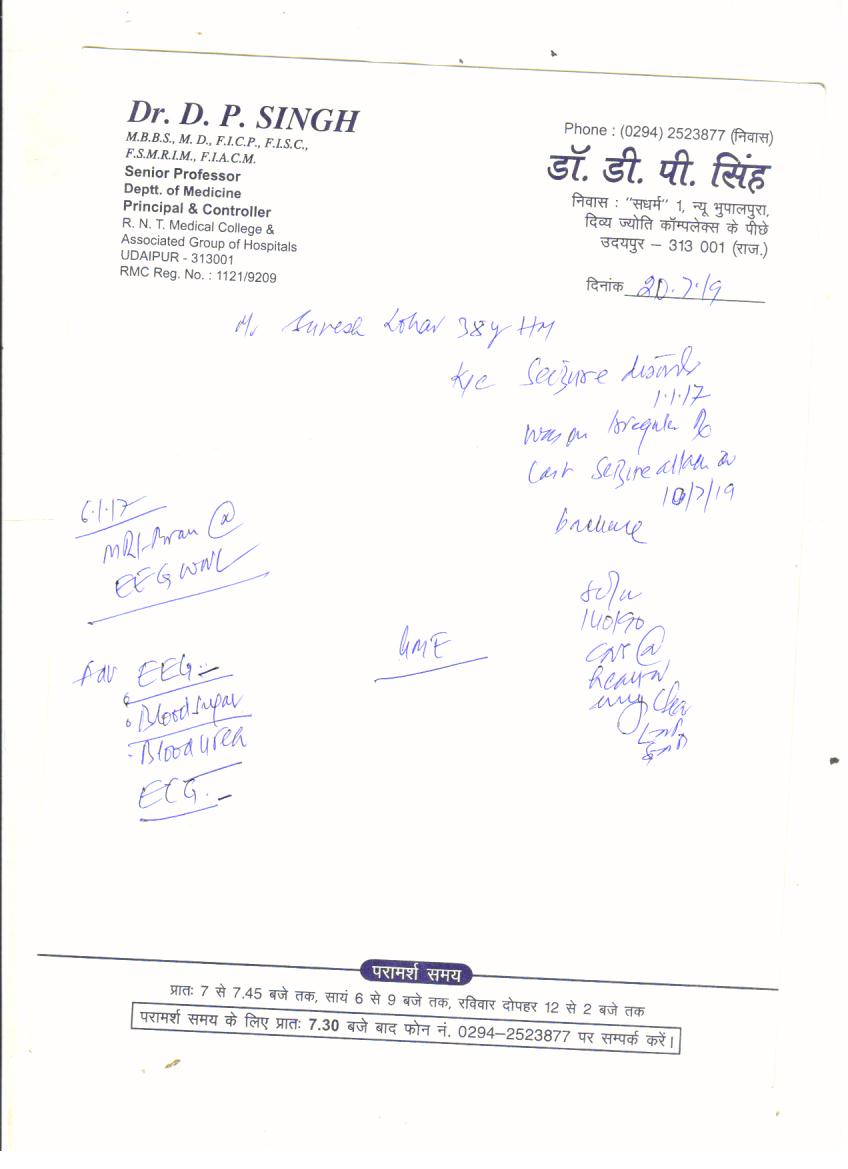 Dr. D. P. SINGH
M.B.B.S., M. D., F.I.C.P., F.I.S.C.,
F.S.M.R.I.M., F.I.A.C.M.
Senior Professor
Deptt. of Medicine
Principal & Controller
R. N. T. Medical College &
Associated Group of Hospitals
UDAIPUR - 313001
RMC Reg. No. : 1121/9209
Phone : (0294) 2523877 (निवास)
डॉ. डी. पी. सिंह
निवास : "सधर्म" 1, न्यू भुपालपुरा,
दिव्य ज्योति कॉम्पलेक्स के पीछे
उदयपुर – 313 001 (राज.)
दिनांक 20.7.19
Mr Suresh Lohar 38y HM
K/C Seizure
1.1.17
was on Irregular
Last Seizure attack on
10/7/19
6.1.17
MRI-Brain
EEG WNL
140/90
GME
Adv EEG
Blood sugar
Blood Urea
ECG
परामर्श समय
प्रातः 7 से 7.45 बजे तक, सायं 6 से 9 बजे तक, रविवार दोपहर 12 से 2 बजे तक
परामर्श समय के लिए प्रातः 7.30 बजे बाद फोन नं. 0294–2523877 पर सम्पर्क करें।